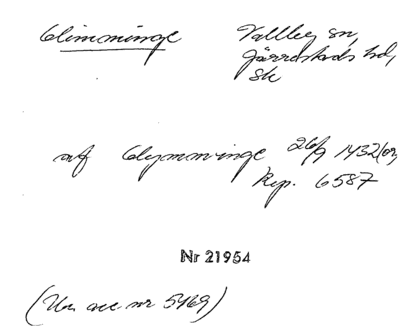 Glimminge Vallby sn,
Järrestads hd,
Sk
af Glymminge 26/9 1432 or,
Rep. 6587
Nr 21954
(Um acc nr 5469)